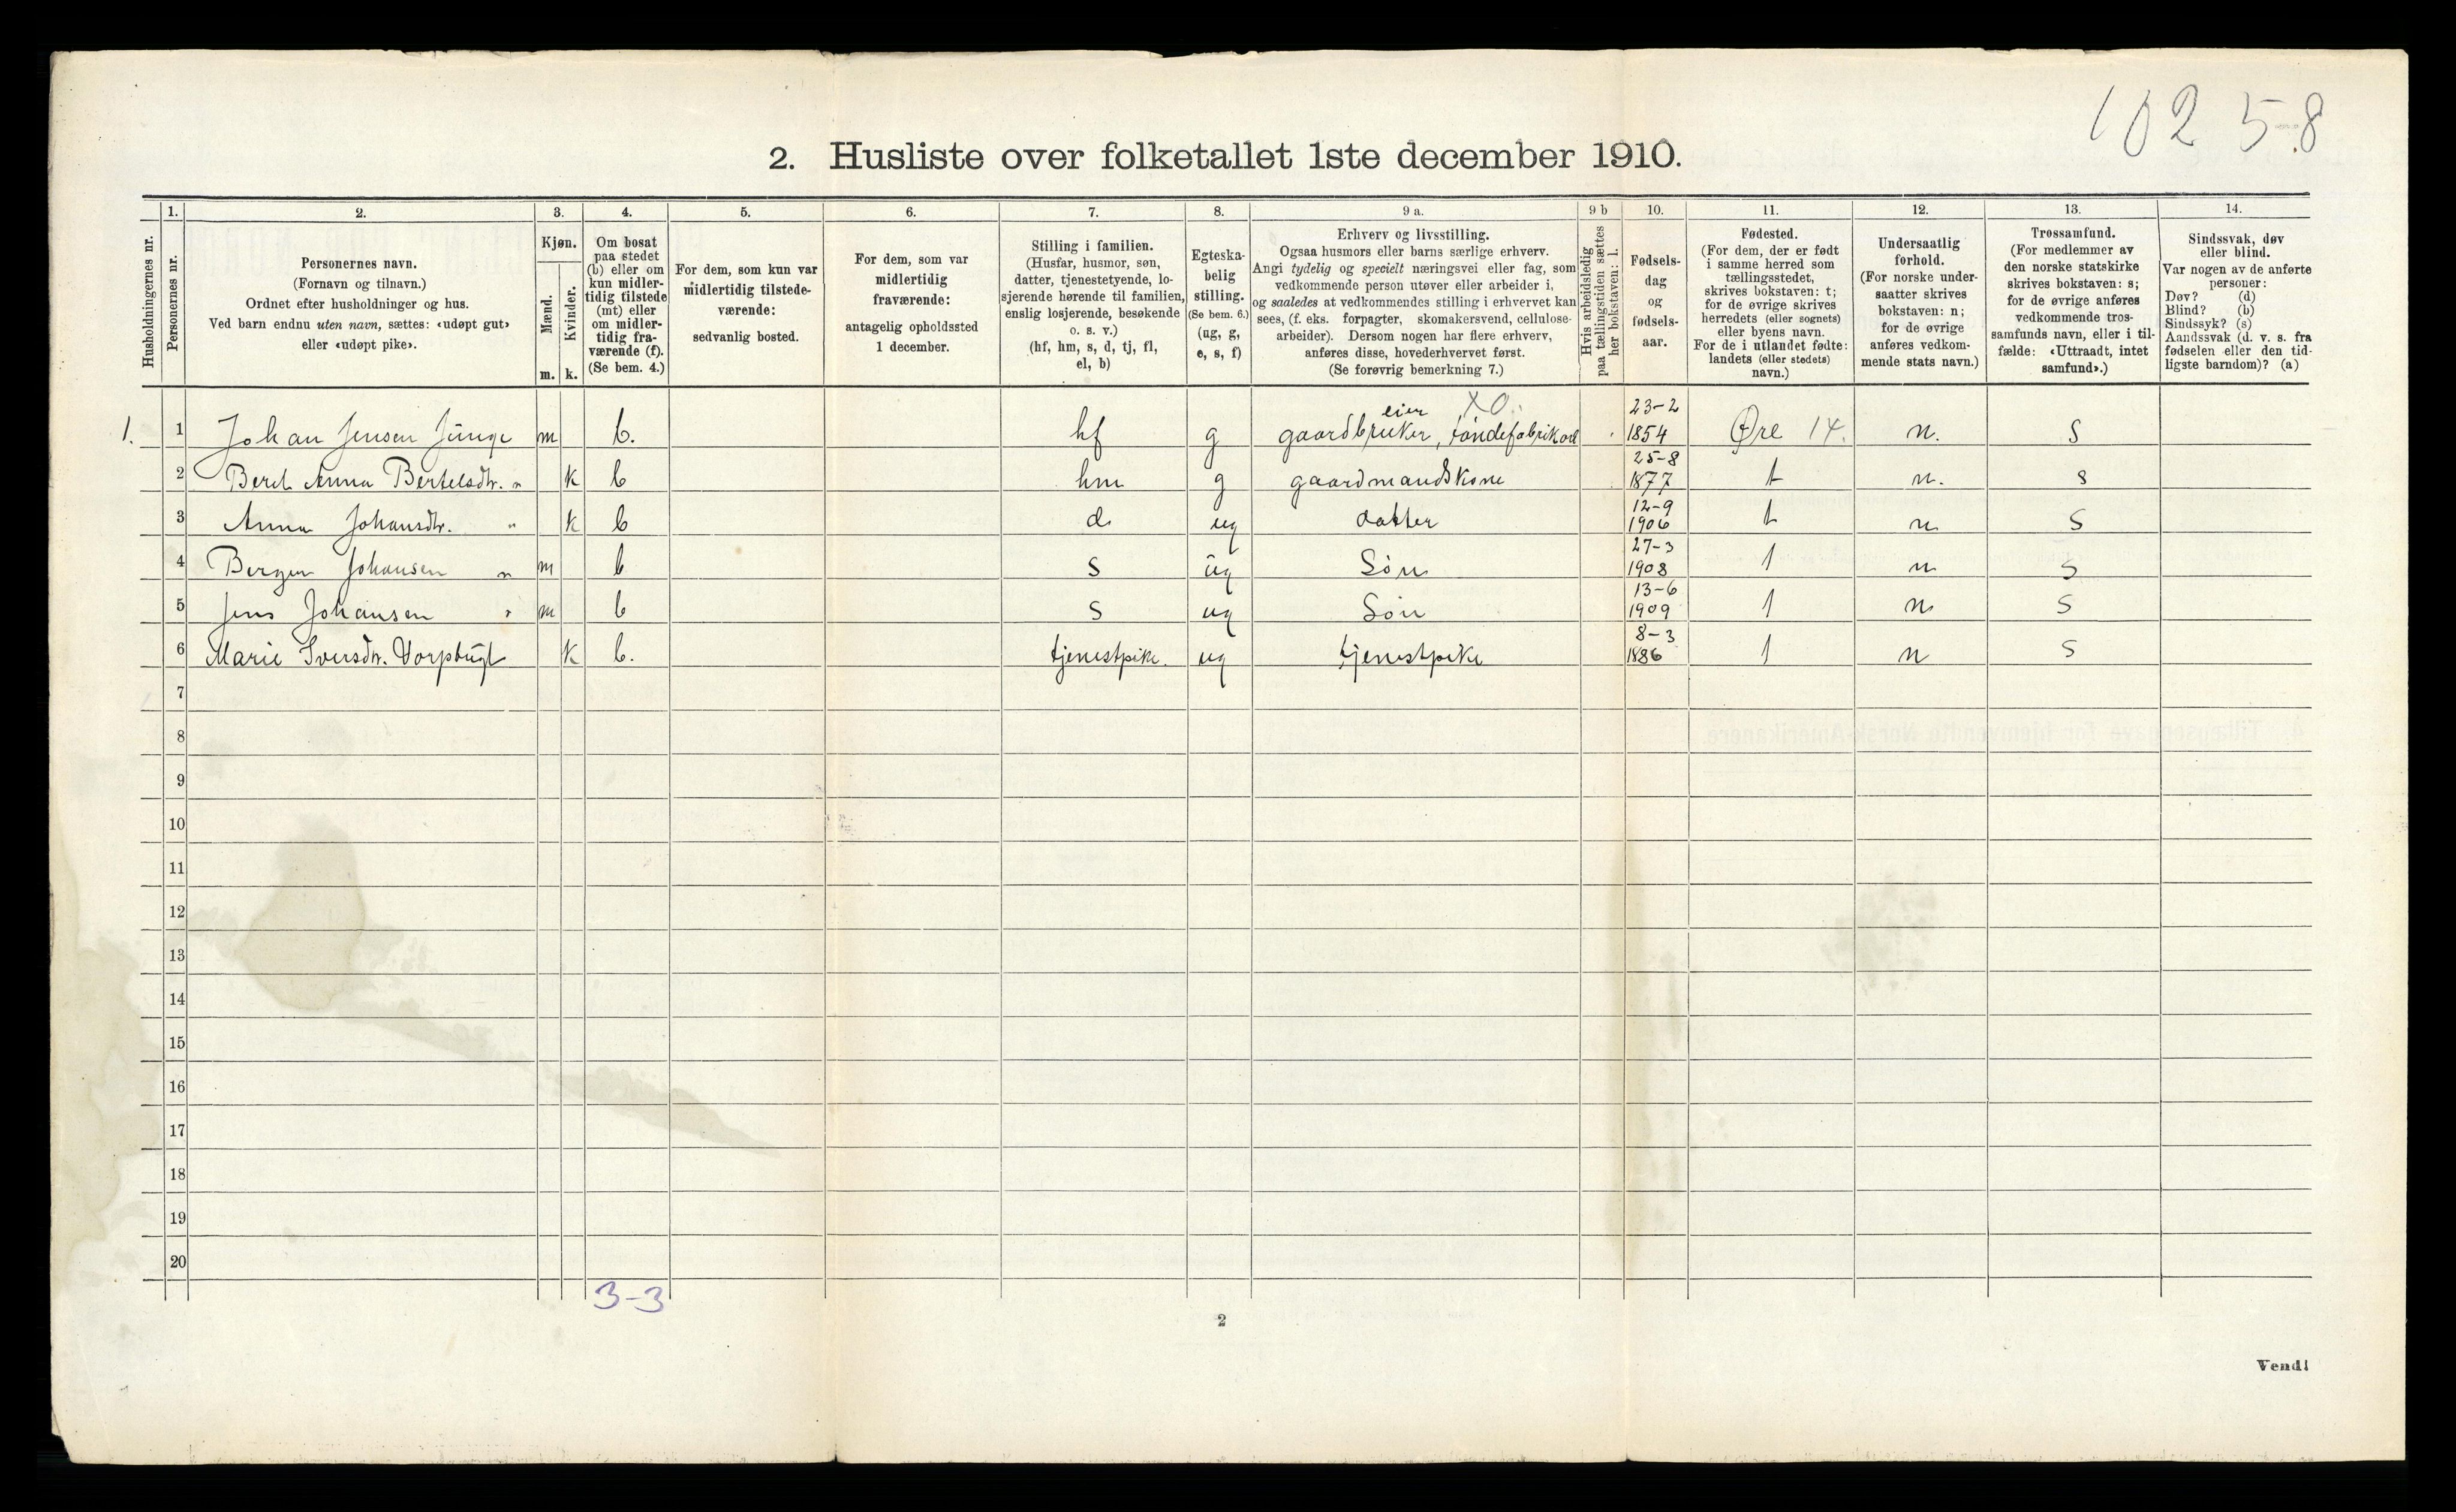 102 5-8
2. Husliste over folketallet 1ste december 1910.
Husholdningernes nr.
1. Personernes nr.
2. Personernes navn. (Fornavn og tilnavn.) Ordnet efter husholdninger og hus. Ved barn endnu uten navn, sættes: «udøpt gut» eller «udøpt pike».
3. Kjøn. Mænd. m. Kvinder. k.
4. Om bosat paa stedet (b) eller om kun midlertidig tilstede (mt) eller om midlertidig fraværende (f). (Se bem. 4.)
5. For dem, som kun var midlertidig tilstedeværende: sedvanlig bosted.
6. For dem, som var midlertidig fraværende: antagelig opholdssted 1 december.
7. Stilling i familien. (Husfar, husmor, søn, datter, tjenestetyende, losjerende hørende til familien, enslig losjerende, besøkende o. s. v.) (hf, hm, s, d, tj, fl, el, b)
8. Egteskabelig stilling. (Se bem. 6.) (ug, g, e, s, f)
9 a. Erhverv og livsstilling. Ogsaa husmors eller barns særlige erhverv. Angi tydelig og specielt næringsvei eller fag, som vedkommende person utøver eller arbeider i, og saaledes at vedkommendes stilling i erhvervet kan sees, (f. eks. forpagter, skomakersvend, cellulosearbeider). Dersom nogen har flere erhverv, anføres disse, hovederhvervet først. (Se forøvrig bemerkning 7.)
9 b Hvis arbeidsledig paa tællingstiden sættes her bokstaven: l.
10. Fødselsdag og fødselsaar.
11. Fødested. (For dem, der er født i samme herred som tællingsstedet, skrives bokstaven: t; for de øvrige skrives herredets (eller sognets) eller byens navn. For de i utlandet fødte: landets (eller stedets) navn.)
12. Undersaatlig forhold. (For norske undersaatter skrives bokstaven: n; for de øvrige anføres vedkommende stats navn.)
13. Trossamfund. (For medlemmer av den norske statskirke skrives bokstaven: s; for de øvrige anføres vedkommende trossamfunds navn, eller i tilfælde: «Uttraadt, intet samfund».)
14. Sindssvak, døv eller blind. Var nogen av de anførte personer: Døv? (d) Blind? (b) Sindssyk? (s) Aandssvak (d. v. s. fra fødselen eller den tidligste barndom)? (a)
1. 1 Johan Jensen Junge m b. hf g gaardbruker eier, tøndefabrikarb XO. 23-2 1854 Øre 14. n. s
2 Berit Anna Bertelsdtr. " k b hm g gaardmandskone 25-8 1877 t n. s
3 Anna Johansdtr. " k b d ug datter 12-9 1906 t n s
4 Bergen Johansen " m b s ug Søn 27-3 1908 t n s
5 Jens Johansen " m b s ug Søn 13-6 1909 t n s
6 Marie Iversdtr. k b. tjenestpike. ug tjenestpike 8-3 1886 t n s
7
8
9
10
11
12
13
14
15
16
17
18
19
20
3-3
2
Vend!